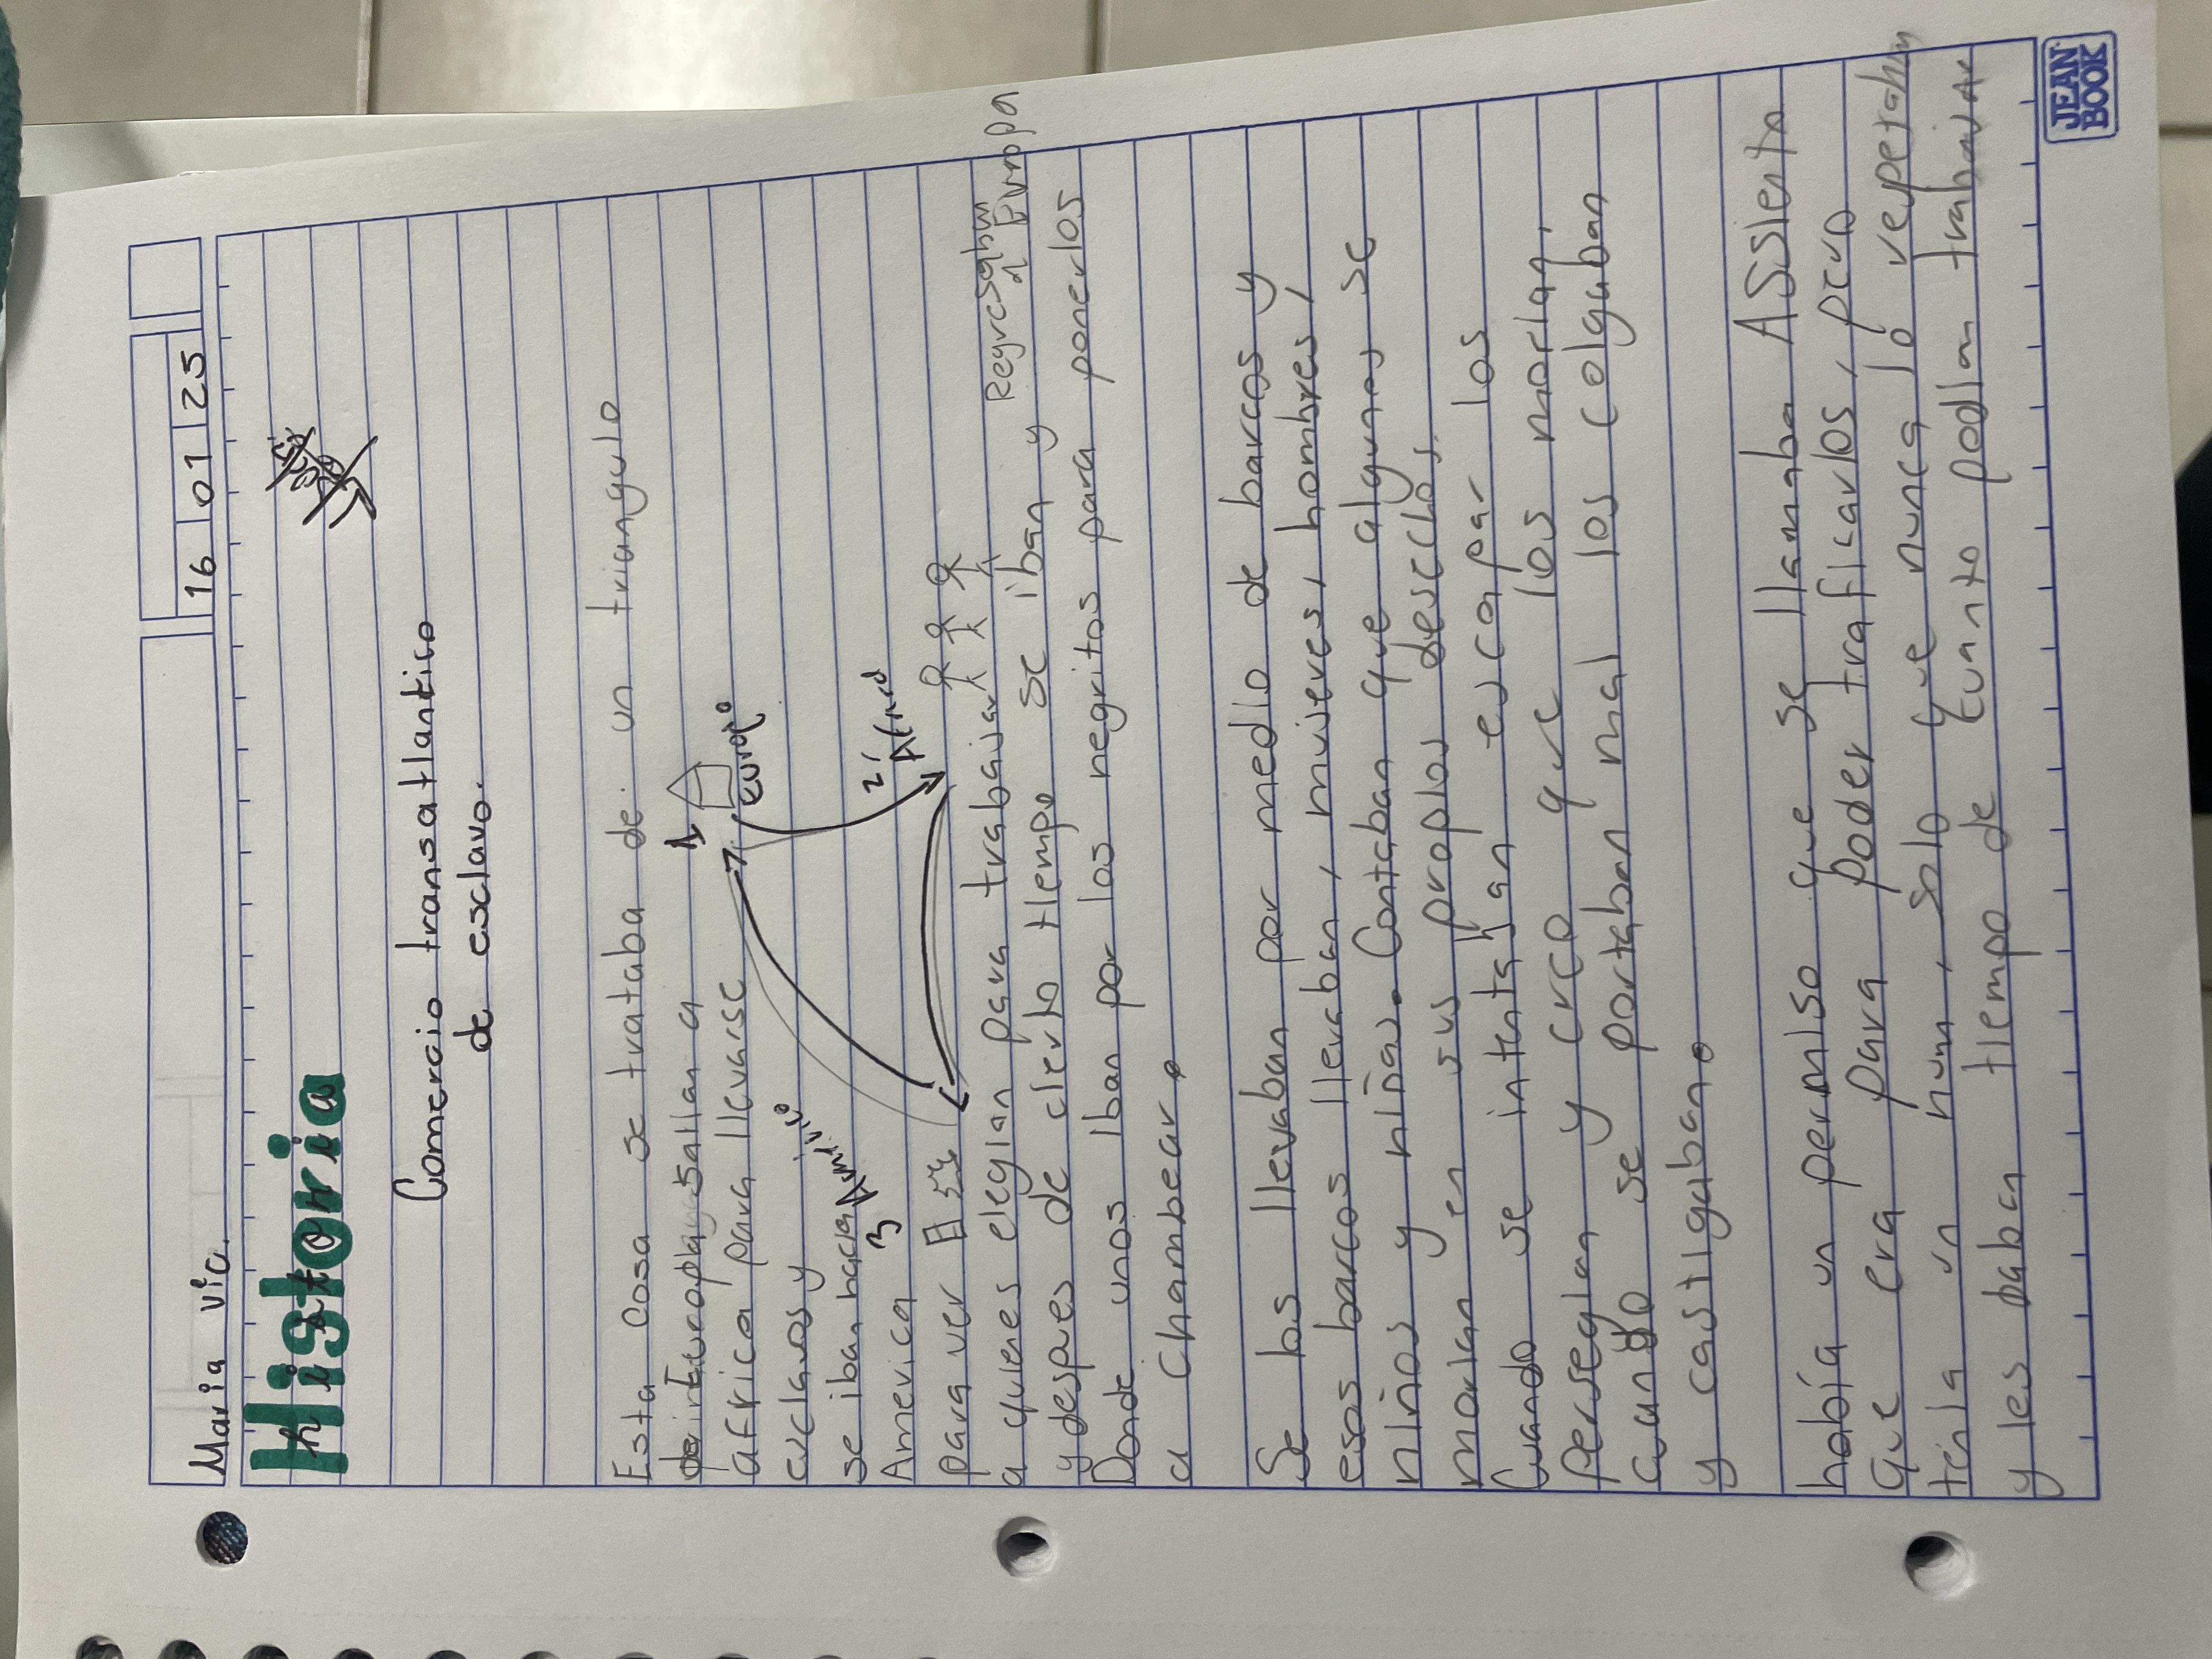 Maria vic.
16 01 25
Historia
Comercio transatlantico
de esclavo.
Esta cosa se trataba de un triangulo
Europa y Salian a
africa para llevarse
esclavos y
se iban hacia
America
para ver
1
Europa
2
Africa
3
a quienes elegian para trabajar
Regresabam
a Europa
y despues de cierto tiempo se iban y
Donde unos iban por los negritos para ponerlos
a chambear.
Se los llevaban por medio de barcos y
esos barcos llevaban, mujeres, hombres,
niños y niñas. Contaban que algunos se
morian en sus propios desechos.
Cuando se intentaban escapar los
perseguian y creo que los morian,
cuando se portaban mal los colgaban
y castigaban.
había un permiso que se llamaba ASSienta
Que era para poder traficarlos, pero
tenia un num, solo que nunca lo
y les daban tiempo de cuanto podian trabajar
JEAN
BOOK